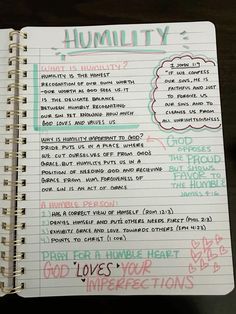 HUMILITY
WHAT IS HUMILITY?
HUMILITY IS THE HONEST
RECOGNITION OF OUR OWN WORTH
-OUR WORTH AS GOD SEES US. IT
IS THE DELICATE BALANCE
BETWEEN HUMBLY RECOGNIZING
OUR SIN YET KNOWING HOW MUCH
GOD LOVES AND VALUES US.
1 JOHN 1:9
"IF WE CONFESS
OUR SINS, HE IS
FAITHFUL AND JUST
TO FORGIVE US
OUR SINS AND TO
CLEANSE US FROM
ALL UNRIGHTEOUSNESS
WHY IS HUMILITY IMPORTANT TO GOD?
PRIDE PUTS US IN A PLACE WHERE
WE CUT OURSELVES OFF FROM GOD'S
GRACE. BUT HUMILITY PUTS US IN A
POSITION OF NEEDING GOD AND RECIEVING
GRACE FROM HIM. FORGIVENESS OF
OUR SIN IS AN ACT OF GRACE.
GOD
OPPOSES
THE PROUD
BUT SHOWS
FAVOR TO
THE HUMBLE
JAMES 4:6
A HUMBLE PERSON:
1. HAS A CORRECT VIEW OF HIMSELF (ROM 12:3)
2. DENIES HIMSELF AND PUTS OTHERS NEEDS FIRST (PHIL 2:3)
3. EXHIBITS GRACE AND LOVE TOWARDS OTHERS (EPH 4:2)
4. POINTS TO CHRIST (1 COR)
PRAY FOR A HUMBLE HEART
GOD LOVES YOUR
IMPERFECTIONS